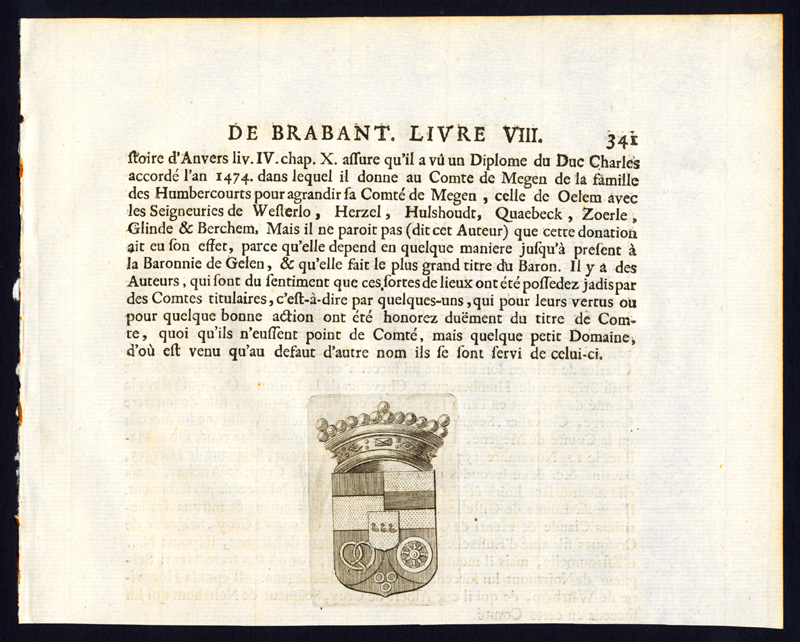 DE BRABANT. LIVRE VIII. 341
stoire d'Anvers liv. IV. chap. X. assure qu'il a vû un Diplome du Duc Charles
accordé l'an 1474. dans lequel il donne au Comte de Megen de la famille
des Humbercourts pour agrandir sa Comté de Megen, celle de Oelem avec
les Seigneuries de Westerlo, Herzel, Hulshoudt, Quaebeck, Zoerle,
Glinde & Berchem, Mais il ne paroit pas (dit cet Auteur) que cette donation
ait eu son effet, parce qu'elle depend en quelque maniere jusqu'à present à
la Baronnie de Gelen, & qu'elle fait le plus grand titre du Baron. Il y a des
Auteurs, qui sont du sentiment que ces sortes de lieux ont été possedez jadis par
des Comtes titulaires, c'est-à-dire par quelques-uns, qui pour leurs vertus ou
pour quelque bonne action ont été honorez duëment du titre de Com-
te, quoi qu'ils n'eussent point de Comté, mais quelque petit Domaine,
d'où est venu qu'au defaut d'autre nom ils se sont servi de celui-ci.